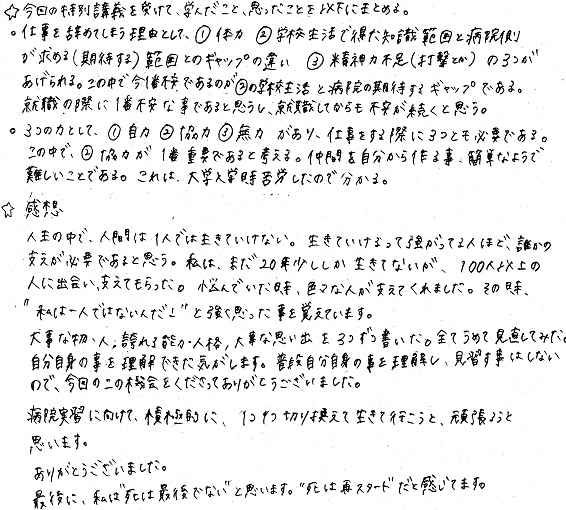 ☆ 今回の特別講義を受けて、学んだこと、思ったことを以下にまとめる。
○ 仕事を辞めてしまう理由として、① 体力 ② 学校生活で得た知識範囲と病院側
が求める(期待する)範囲とのギャップの違い ③ 精神力不足(打撃とか)の3つが
あげられる。この中で今1番不安であるのが②の学校生活と病院の期待するギャップである。
就職の際に1番不安な事であると思うし、就職してからも不安が続くと思う。
○ 3つの力として、① 自力 ② 協力 ③ 無力 があり、仕事をする際に3つとも必要である。
この中で、② 協力が1番重要であると考える。仲間を自分から作る事、簡単なようで
難しいことである。これは、大学入学時苦労したので分かる。
☆ 感想
人生の中で、人間は1人では生きていけない。生きていけるって強がってる人ほど、誰かの
支えが必要であると思う。私は、まだ20年少ししか生きてないが、100人以上の
人に出会い、支えてもらった。悩んでいた時、色々な人が支えてくれました。その時、
"私は一人ではないんだ!"と強く思った事を覚えています。
大事な物・人、誇れる能力・人格、大事な思い出を3つずつ書いた。全てうめて見直してみた。
自分自身の事を理解できた気がします。普段自分自身の事を理解し、見習す事はしない
ので、今回のこの機会をくださってありがとうございました。
病院実習に向けて、積極的に、1つ1つ切り換えて生きて行こうと、頑張ろうと
思います。
ありがとうございました。
最後に、私は"死は最後でない"と思います。"死は再スタート"だと感じてます。